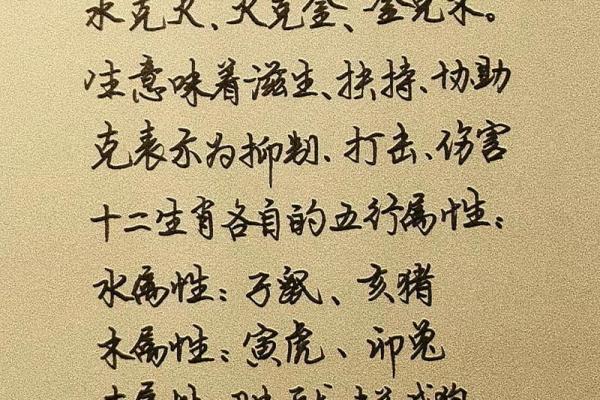 水克火、火克金、金克木。
生意味着滋生、扶持、协助
克表示为抑制、打击、伤害
十二生肖各自的五行属性：
水属性：子鼠、亥猪
木属性：寅虎、卯兔